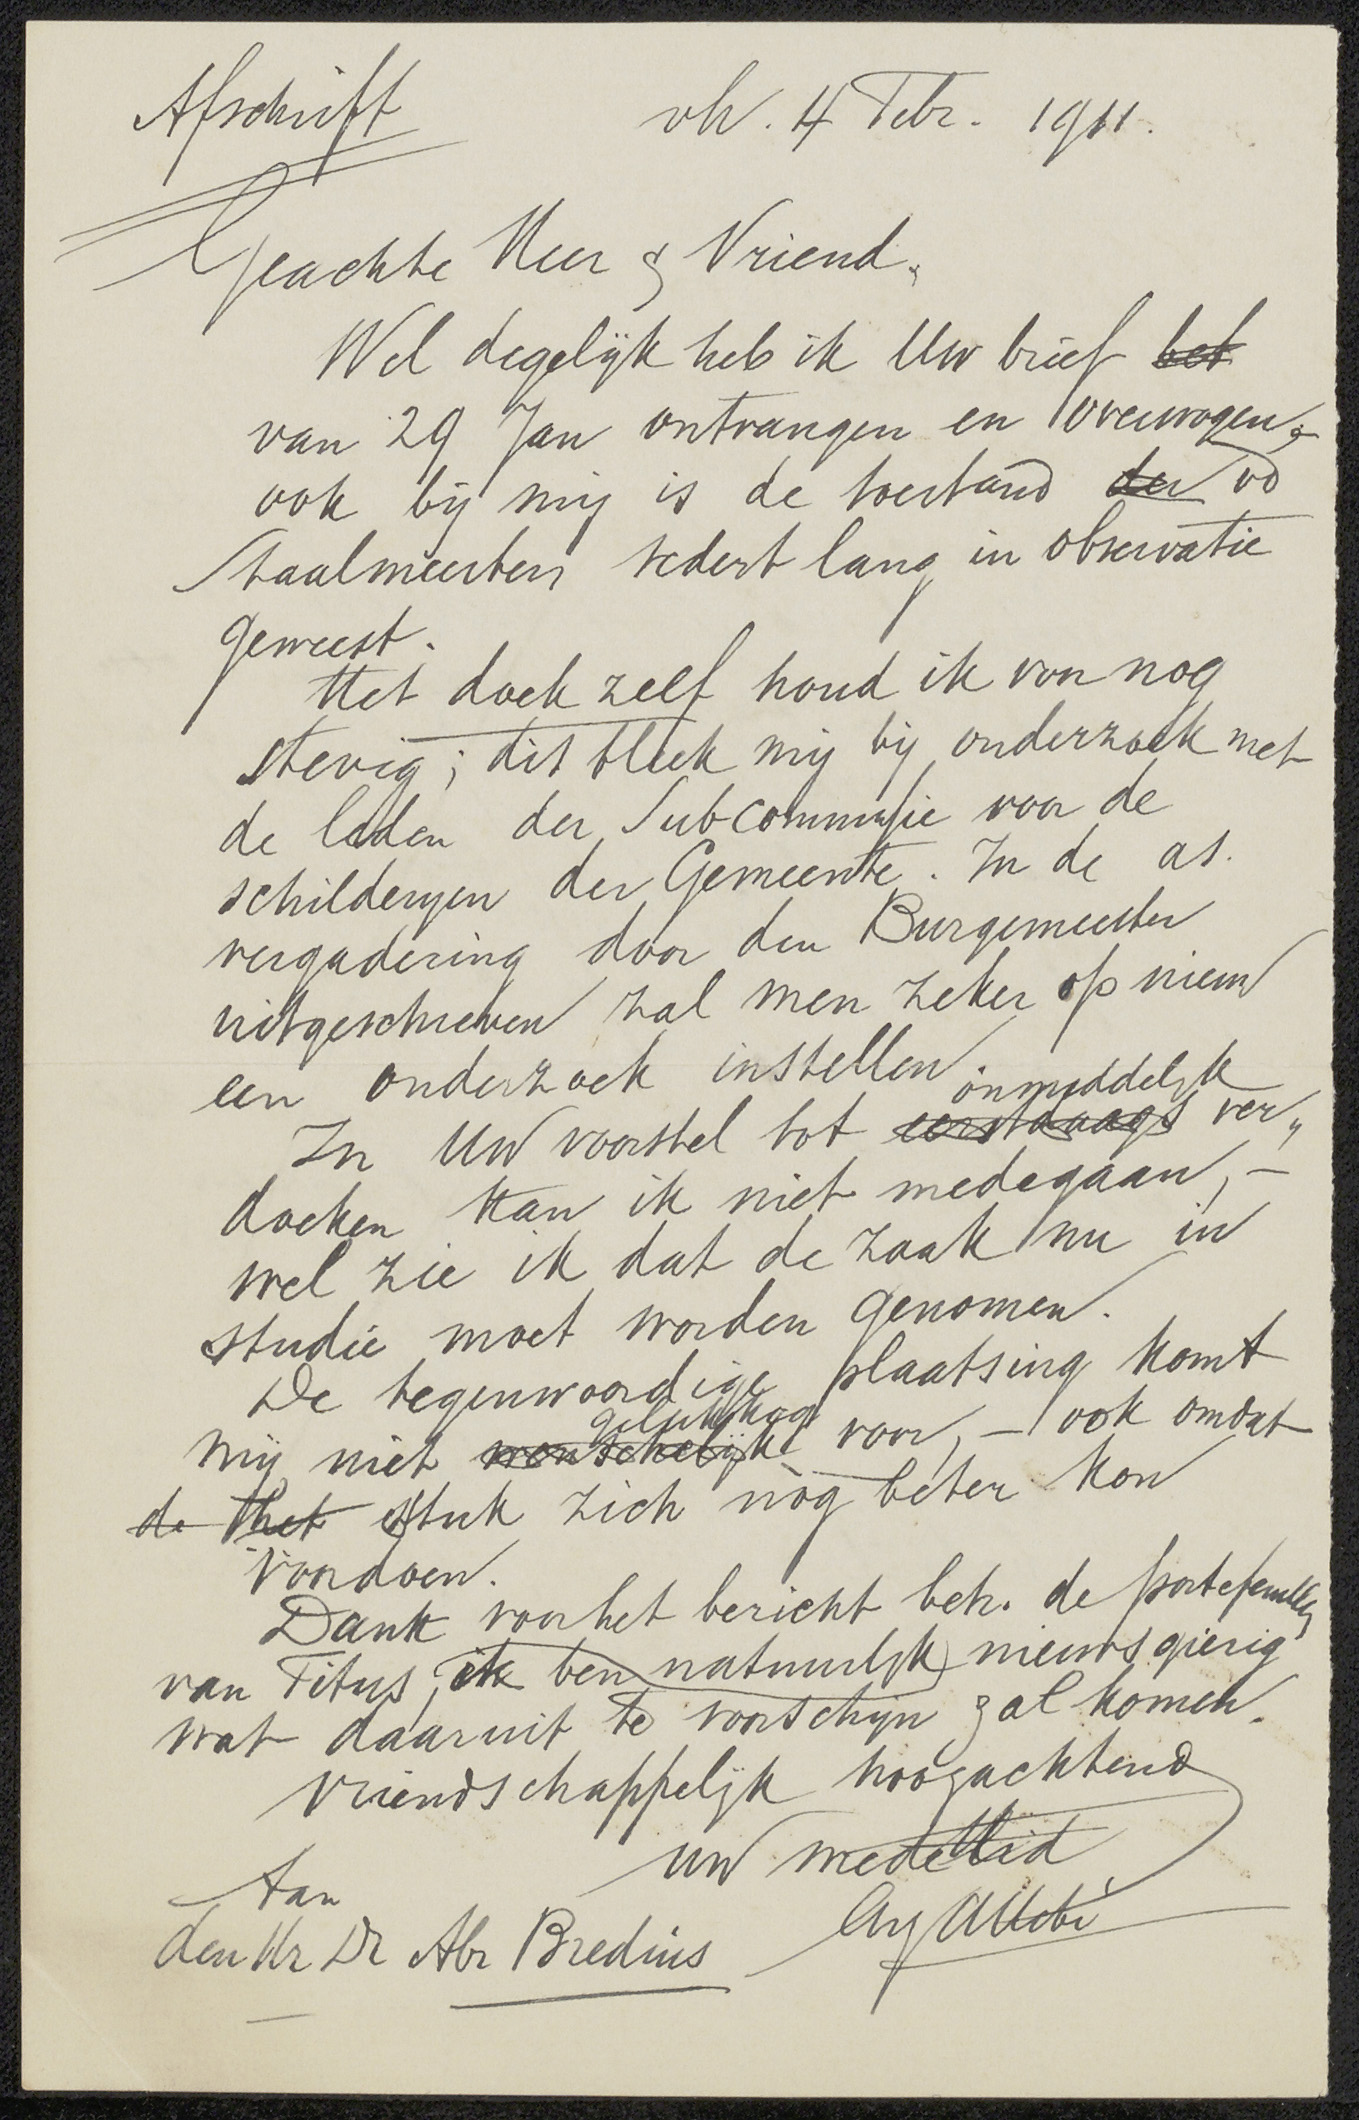 Afschrift
vh. 4 Febr. 1911.
Geachte Heer & Vriend.
Wel degelijk heb ik Uw brief
van 29 Jan ontvangen en overwogen,
ook bij mij is de toestand der vd
Staalmeesters sedert lang in observatie
geweest.
Het doek zelf houd ik voor nog
stevig; dit bleek mij bij onderzoek met
de leden der Subcommissie voor de
schilderyen der Gemeente. In de as.
vergadering door den Burgemeester
uitgeschreven zal men zeker op nieuw
een onderzoek instellen
onmiddelyk
In Uw voorstel tot eerstdaags ver„
doeken kan ik niet medegaan, –
wel zie ik dat de zaak nu in
studie moet worden genomen.
De tegenwoordige plaatsing komt
gelukkig
mij niet wenschelijk voor, – ook omdat
de het stuk zich nòg beter kon
voordoen.
Dank voor het bericht betr. de portefeuilles
van Titus, ik ben natuurlyk nieuwsgierig
wat daaruit te voorschyn zal komen.
Vriendschappelijk hoogachtend
uw medelid
Aug Allebé
Aan
den Hr Dr Abr Bredius